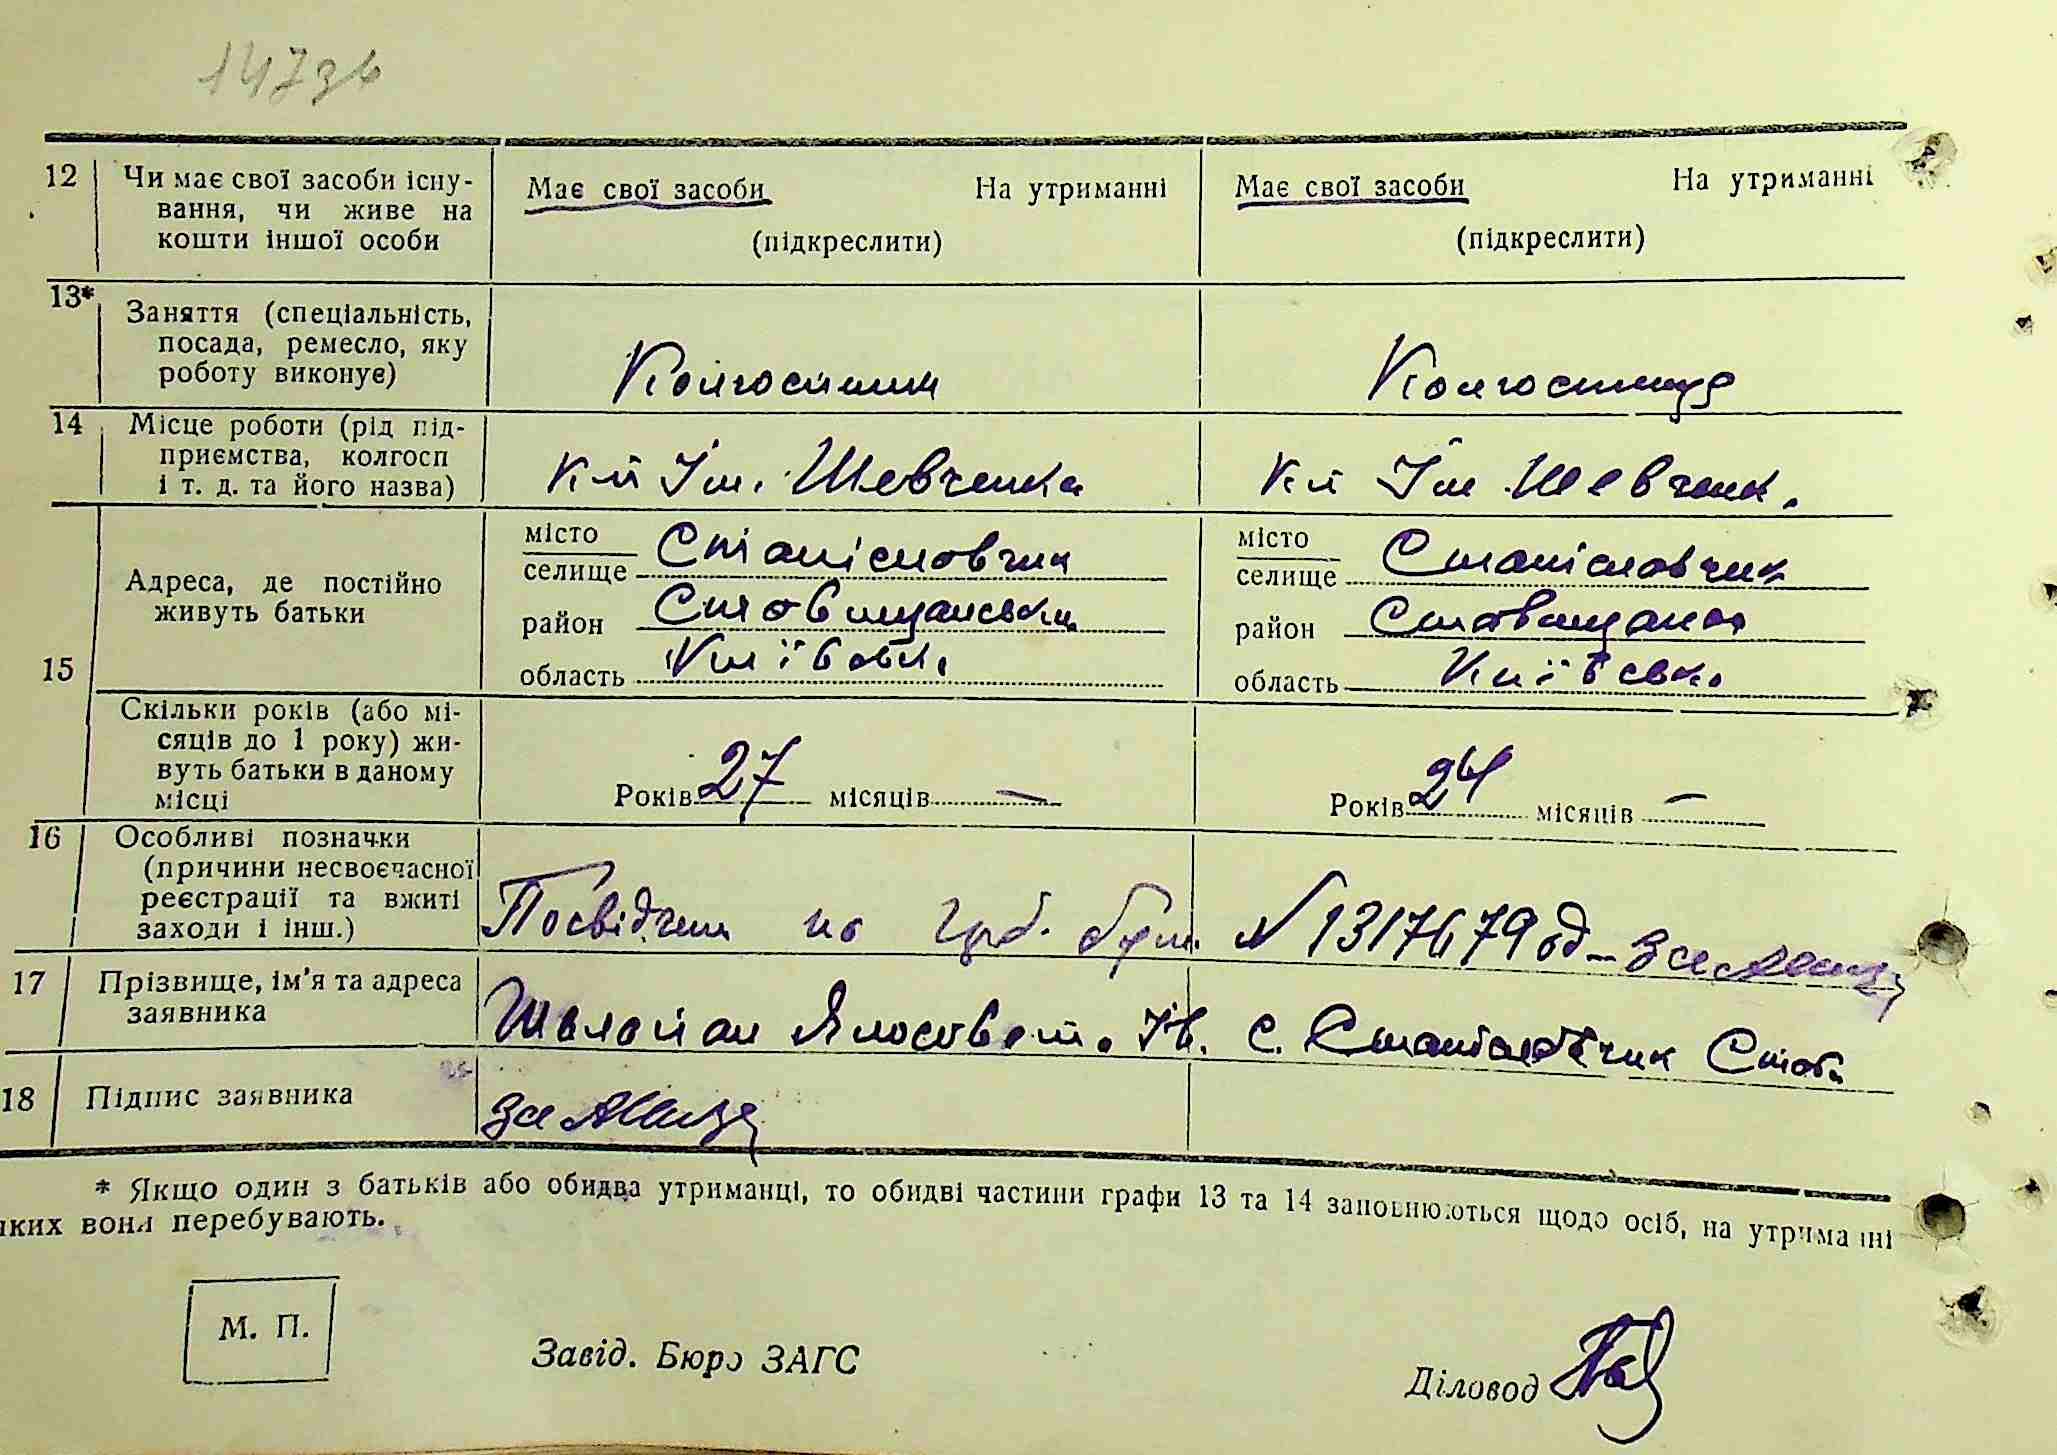 147зв
12 Чи має свої засоби існу- Має свої засоби На утриманні Має свої засоби На утриманні
вання, чи живе на
кошти іншої особи (підкреслити) (підкреслити)
13* Заняття (спеціальність,
посада, ремесло, яку
роботу виконує) Колгоспник Колгоспниця
14 Місце роботи (рід під-
приємства, колгосп
і т. д. та його назва) К-п Ім. Шевченка К-п Ім Шевченк.
15 Адреса, де постійно
живуть батьки
місто
селище Станіславчик
район Ставищанськи
область Київськ.
місто
селище Станіславчик
район Ставищанськ
область Київськ.
Скільки років (або мі-
сяців до 1 року) жи-
вуть батьки в даному
місці Років 27 місяців — Років 24 місяців —
16 Особливі позначки
(причини несвоєчасної
реєстрації та вжиті
заходи і інш.) Посвідчен на № 1317679 од
17 Прізвище, ім'я та адреса
заявника Ів. с. Станіславчик Став.
18 Підпис заявника
* Якщо один з батьків або обидва утриманці, то обидві частини графи 13 та 14 заповнюються щодо осіб, на утриманні
яких вони перебувають.
М. П.
Завід. Бюро ЗАГС
Діловод